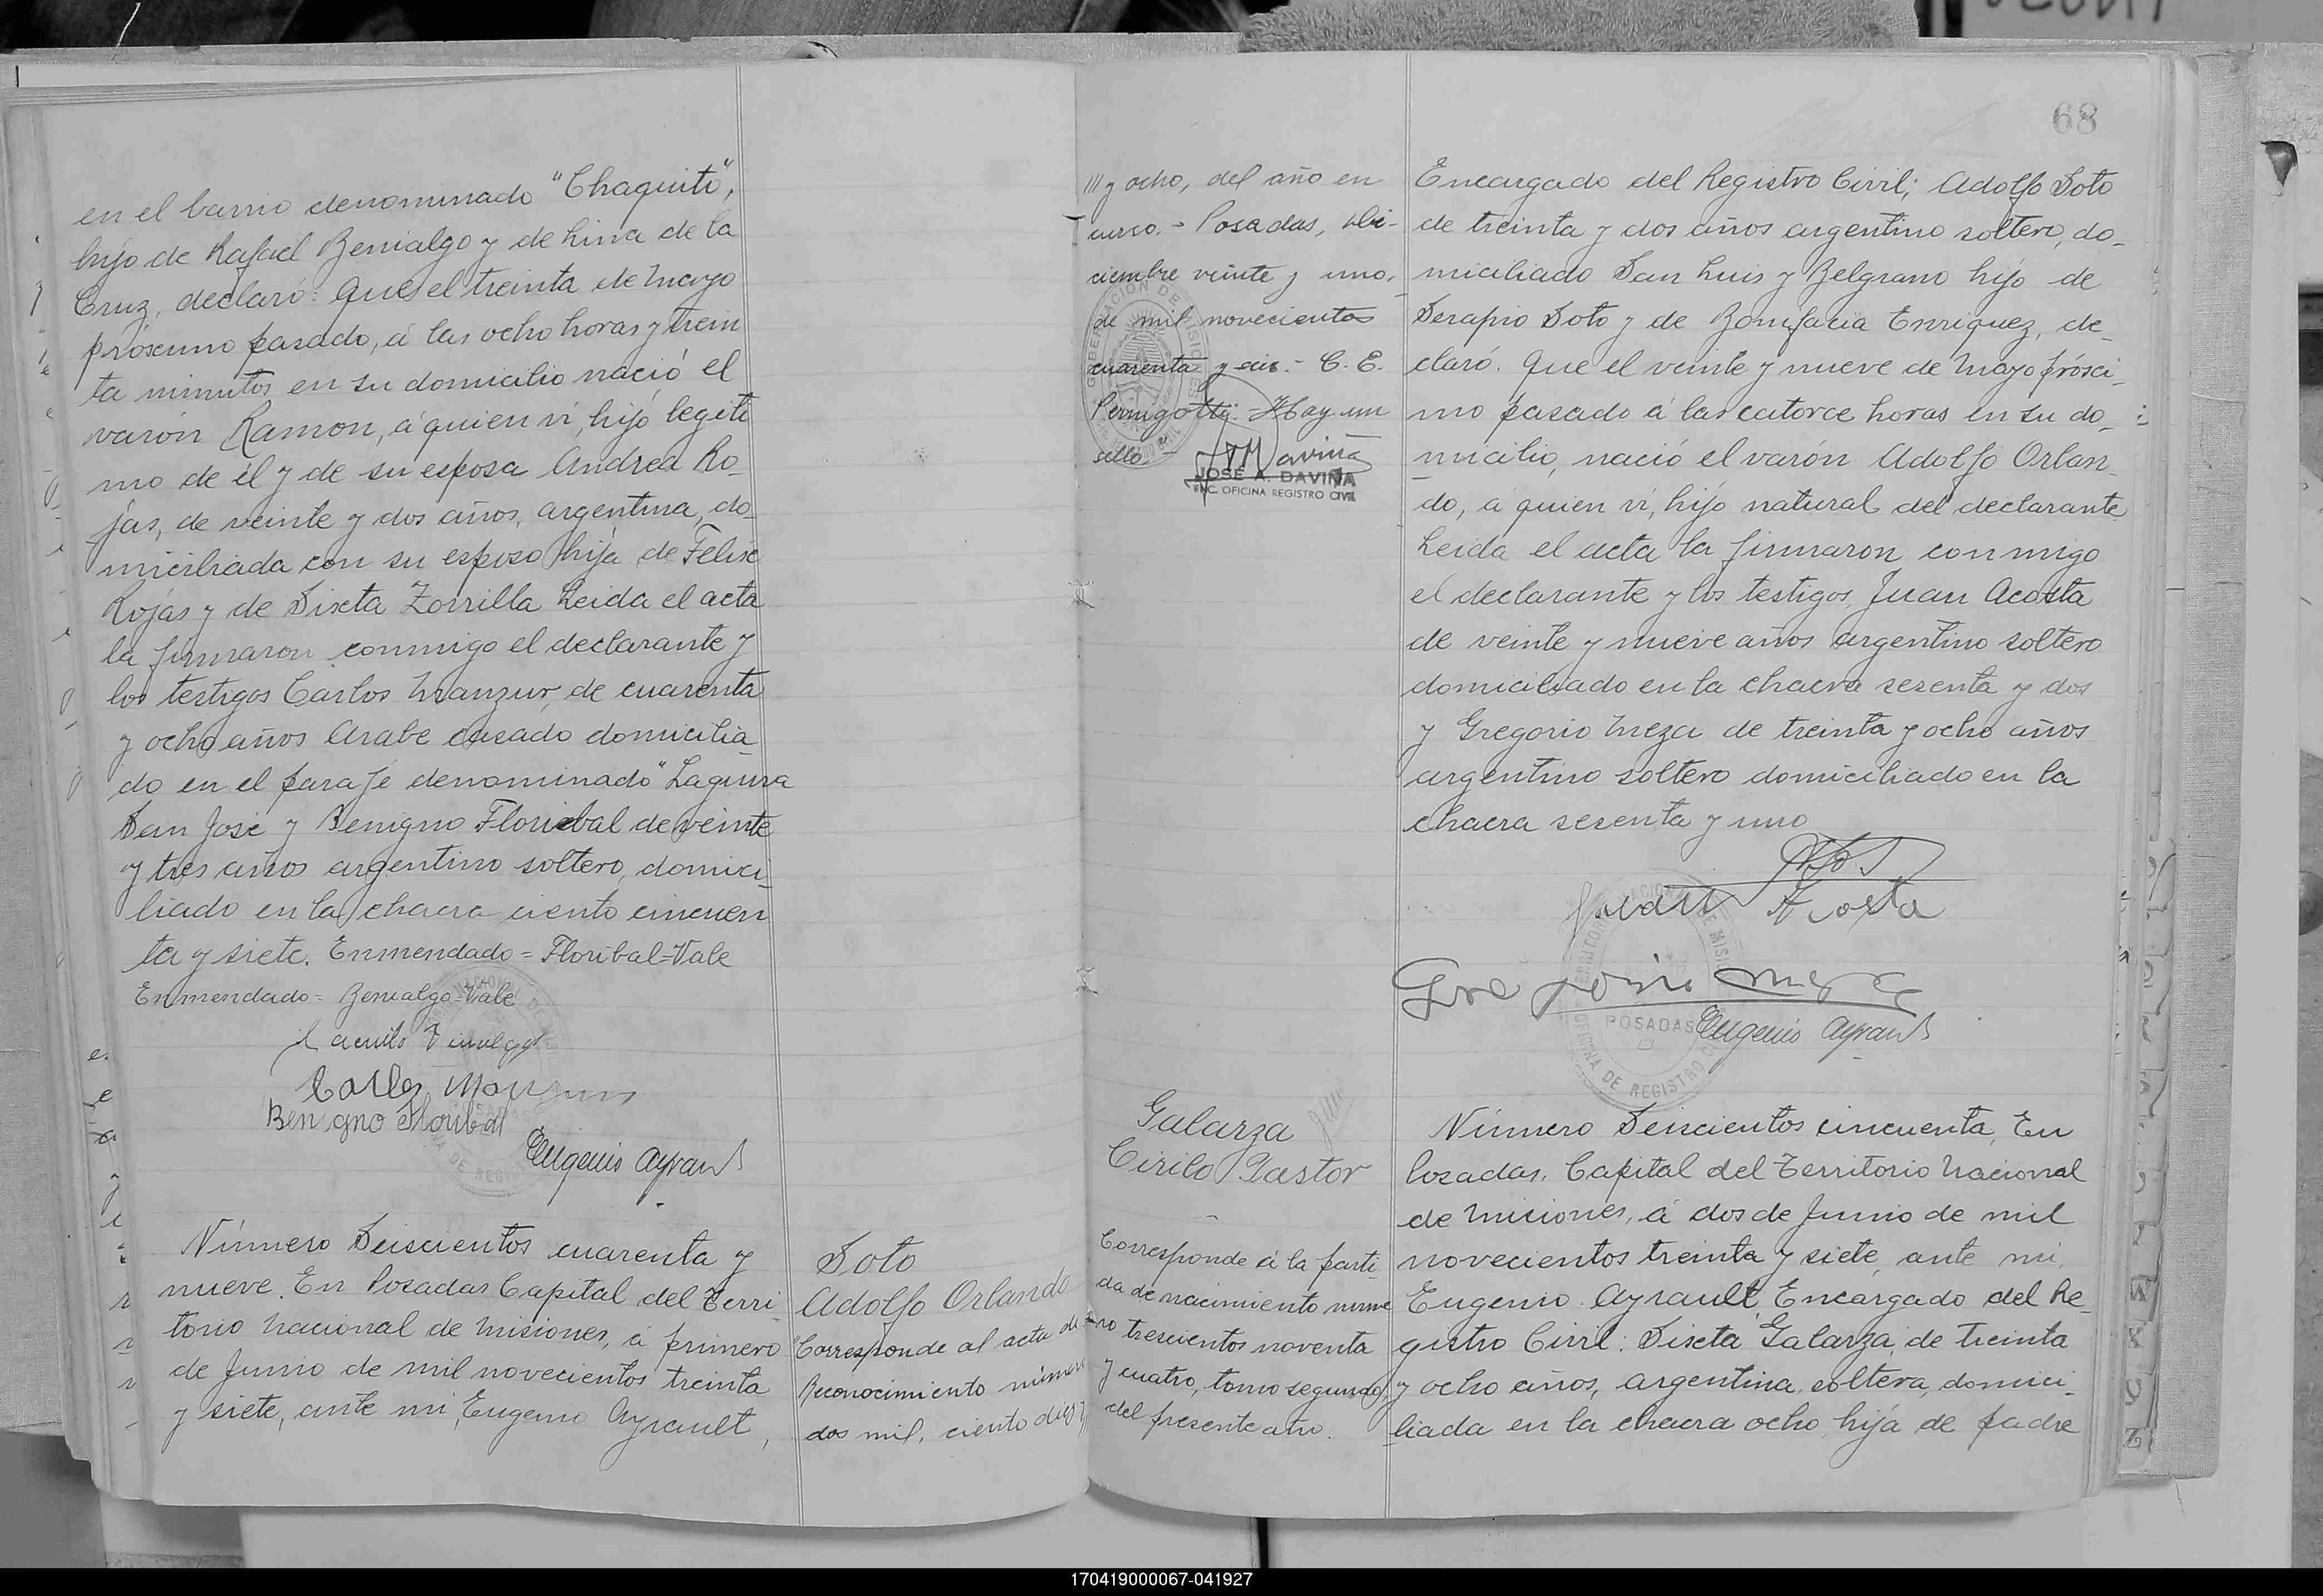 en el barrio denominado "Chaquito",
hijo de Rafael Benialgo y de Lina de la
Cruz, declaró: Que el treinta de Mayo
próximo pasado, á las ocho horas y trein
ta minutos en su domicilio nació el
varón Ramon, á quien ví, hijo legiti
mo de él y de su esposa Andrea Ro_
jas, de veinte y dos años, argentina, do_
miciliada con su esposo hija de Felix
Rojas y de Sixta Zorrilla Leida el acta
la firmaron conmigo el declarante y
los testigos Carlos Manzur, de cuarenta
y ocho años Arabe casado domicilia_
do en el paraje denominado "Laguna
San José y Benigno Floribal de veinte
y tres años argentino soltero, domici_
liado en la chacra ciento cincuen
ta y siete. Enmendado = Floribal=Vale
Enmendado = Benialgo=Vale
Carlos Manzur
Benigno Floribal
Eugenio Ayrault
Número Seiscientos cuarenta y
nueve. En Posadas Capital del Terri_
torio Nacional de Misiones, á primero
de Junio de mil novecientos treinta
y siete, ante mi, Eugenio Ayrault,
Soto
Adolfo Orlando
"Corresponde al acta de
Reconocimiento número
dos mil, ciento diez y
68
/// y ocho, del año en
curso. - Posadas, Di-
ciembre veinte y uno.
de mil novecientos
cuarenta y seis. - C. E.
Perugotti. Hay un
sello.
JOSÉ A. DAVIÑA
ENC. OFICINA REGISTRO CIVIL
Encargado del Registro Civil; Adolfo Soto
de treinta y dos años argentino soltero, do_
miciliado San Luis y Belgrano hijo de
Serapio Soto y de Bonifacia Enriquez, de_
claró. Que el veinte y nueve de Mayo prósci_
mo pasado á las catorce horas en su do_
micilio, nació el varón Adolfo Orlan_
do, á quien ví, hijo natural del declarante
Leida el acta la firmaron conmigo
el declarante y los testigos, Juan Acosta
de veinte y nueve años argentino soltero
domiciliado en la chacra sesenta y dos
y Gregorio Meza de treinta y ocho años
argentino soltero domiciliado en la
chacra sesenta y uno
Acosta
Gregorio Meza
POSADAS
OFICINA DE REGISTRO CIVIL
Eugenio Ayrault
Galarza
Cirilo Pastor
Corresponde á la parti_
da de nacimiento núme
ro trescientos noventa
y cuatro, tomo segundo,
del presente año.
Número Seiscientos cincuenta, En
Posadas, Capital del Territorio Nacional
de Misiones, á dos de Junio de mil
novecientos treinta y siete, ante mi,
Eugenio Ayrault, Encargado del Re_
gistro Civil: Sixta Galarza, de treinta
y ocho años, argentina, soltera, domici_
liada en la chacra ocho, hija de padre
170419000067-041927